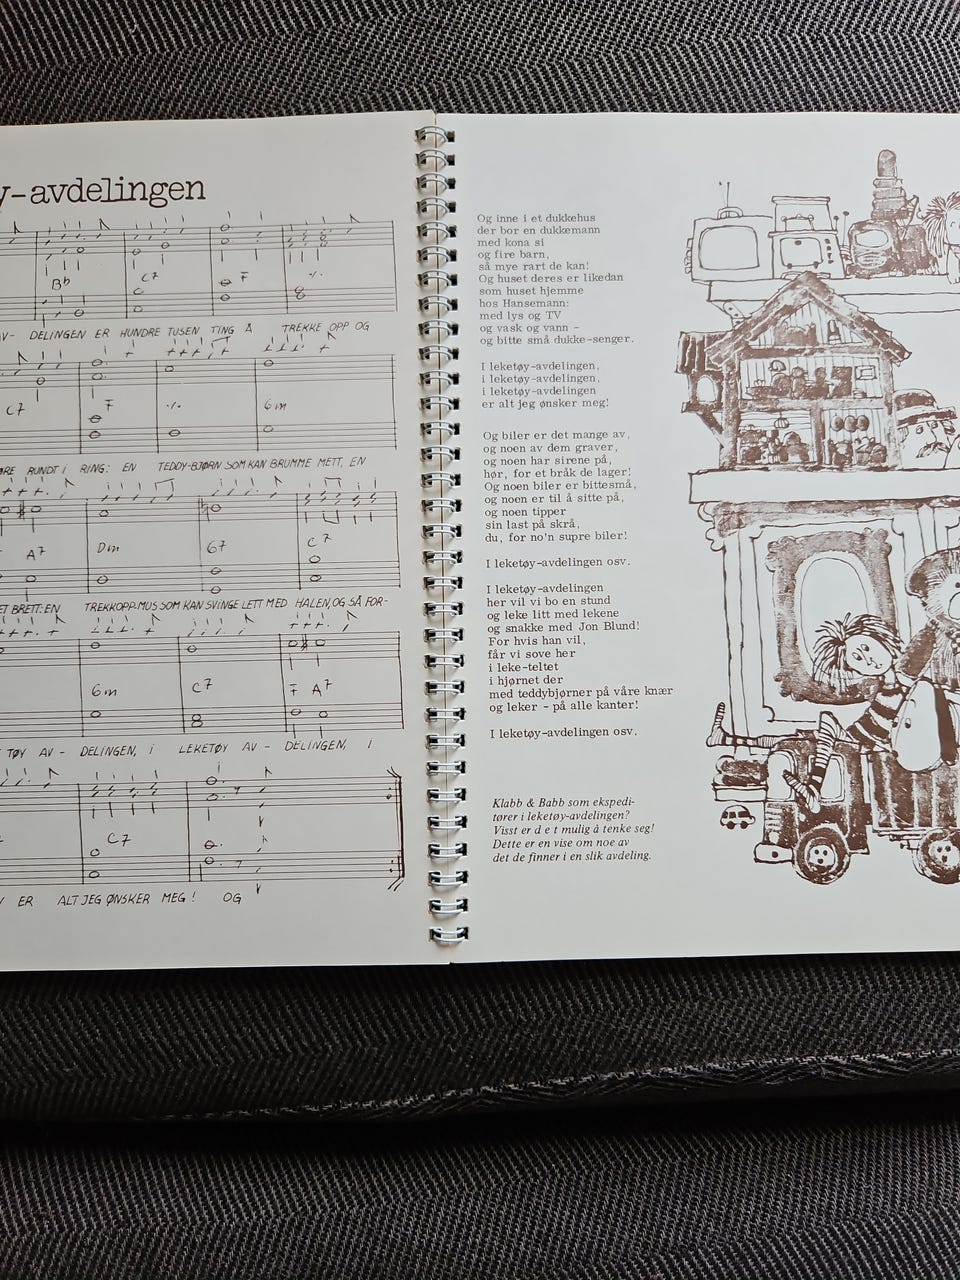 y-avdelingen
Bb C7 F ·/.
V- DELINGEN ER HUNDRE TUSEN TING Å TREKKE OPP OG
C7 F ·/. Gm
RE RUNDT I RING: EN TEDDY-BJØRN SOM KAN BRUMME METT, EN
A7 Dm G7 C7
ET BRETT: EN TREKKOPP-MUS SOM KAN SVINGE LETT MED HALEN, OG SÅ FOR-
Gm C7 F A7
TØY AV - DELINGEN, I LEKETØY AV - DELINGEN, I
C7
ER ALT JEG ØNSKER MEG! OG
Og inne i et dukkehus
der bor en dukkemann
med kona si
og fire barn,
så mye rart de kan!
Og huset deres er likedan
som huset hjemme
hos Hansemann:
med lys og TV
og vask og vann -
og bitte små dukke-senger.
I leketøy-avdelingen,
i leketøy-avdelingen,
i leketøy-avdelingen
er alt jeg ønsker meg!
Og biler er det mange av,
og noen av dem graver,
og noen har sirene på,
hør, for et bråk de lager!
Og noen biler er bittesmå,
og noen er til å sitte på,
og noen tipper
sin last på skrå,
du, for no'n supre biler!
I leketøy-avdelingen osv.
I leketøy-avdelingen
her vil vi bo en stund
og leke litt med lekene
og snakke med Jon Blund!
For hvis han vil,
får vi sove her
i leke-teltet
i hjørnet der
med teddybjørner på våre knær
og leker - på alle kanter!
I leketøy-avdelingen osv.
Klabb & Babb som ekspedi-
tører i leketøy-avdelingen?
Visst er d e t mulig å tenke seg!
Dette er en vise om noe av
det de finner i en slik avdeling.